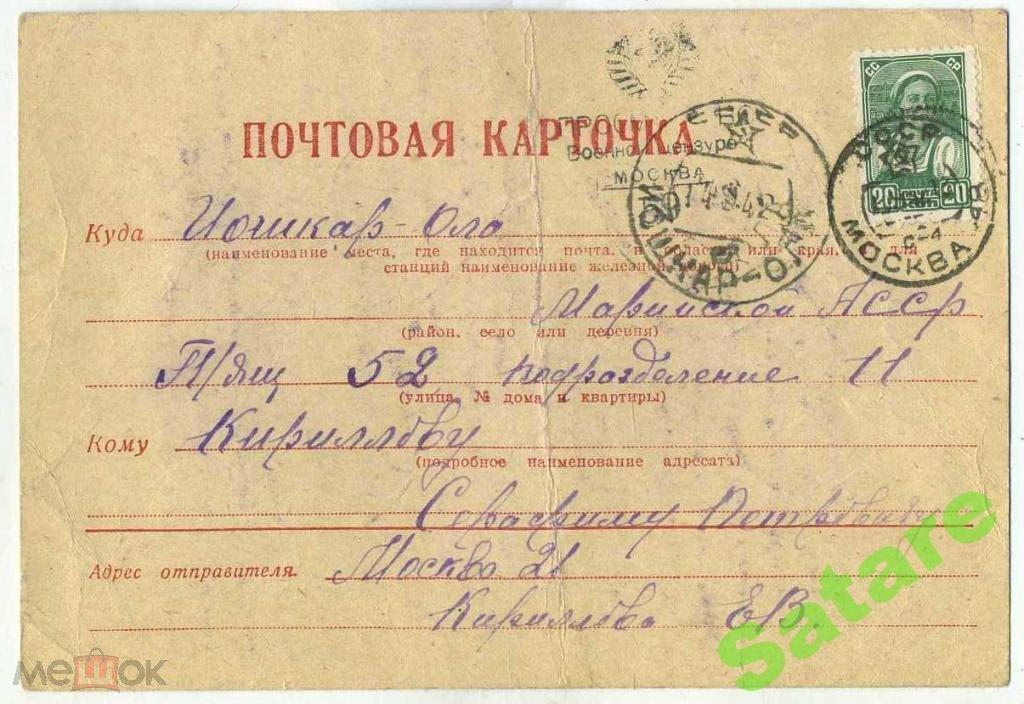 СС СР
20 ПОЧТА 20
СССР
МОСКВА
СССР
ЙОШКАР-ОЛА
Военной Цензурой
МОСКВА
ПОЧТОВАЯ КАРТОЧКА
Куда Иошкар-Ола
(наименование места, где находится почта, и области или края, для
станций наименование железной дороги)
Марийской АССР
(район, село или деревня)
П/ящ 52 подразделение 11
(улица, № дома и квартиры)
Кому Кириллову
(подробное наименование адресата)
Серафиму Петровичу
Адрес отправителя. Москва 21
Кириллова Е.В.
Satare
мешок